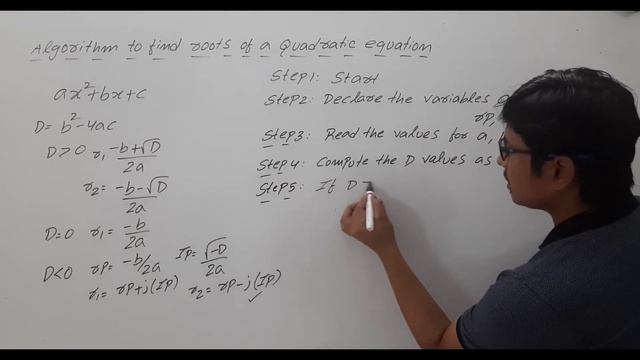 Algorithm to find roots of a Quadratic equation
ax²+bx+c
D= b²-4ac
D>0 r₁ = (-b+√D)/2a
r₂= (-b-√D)/2a
D=0 r₁= -b/2a
D<0 rP= -b/2a IP= √-D/2a
r₁= rP+j(IP) r₂= rP-j(IP) ✓
Step1: Start
Step2: Declare the variables
rP,
Step3: Read the values for a,
Step4: Compute the D values as
Step5: If D